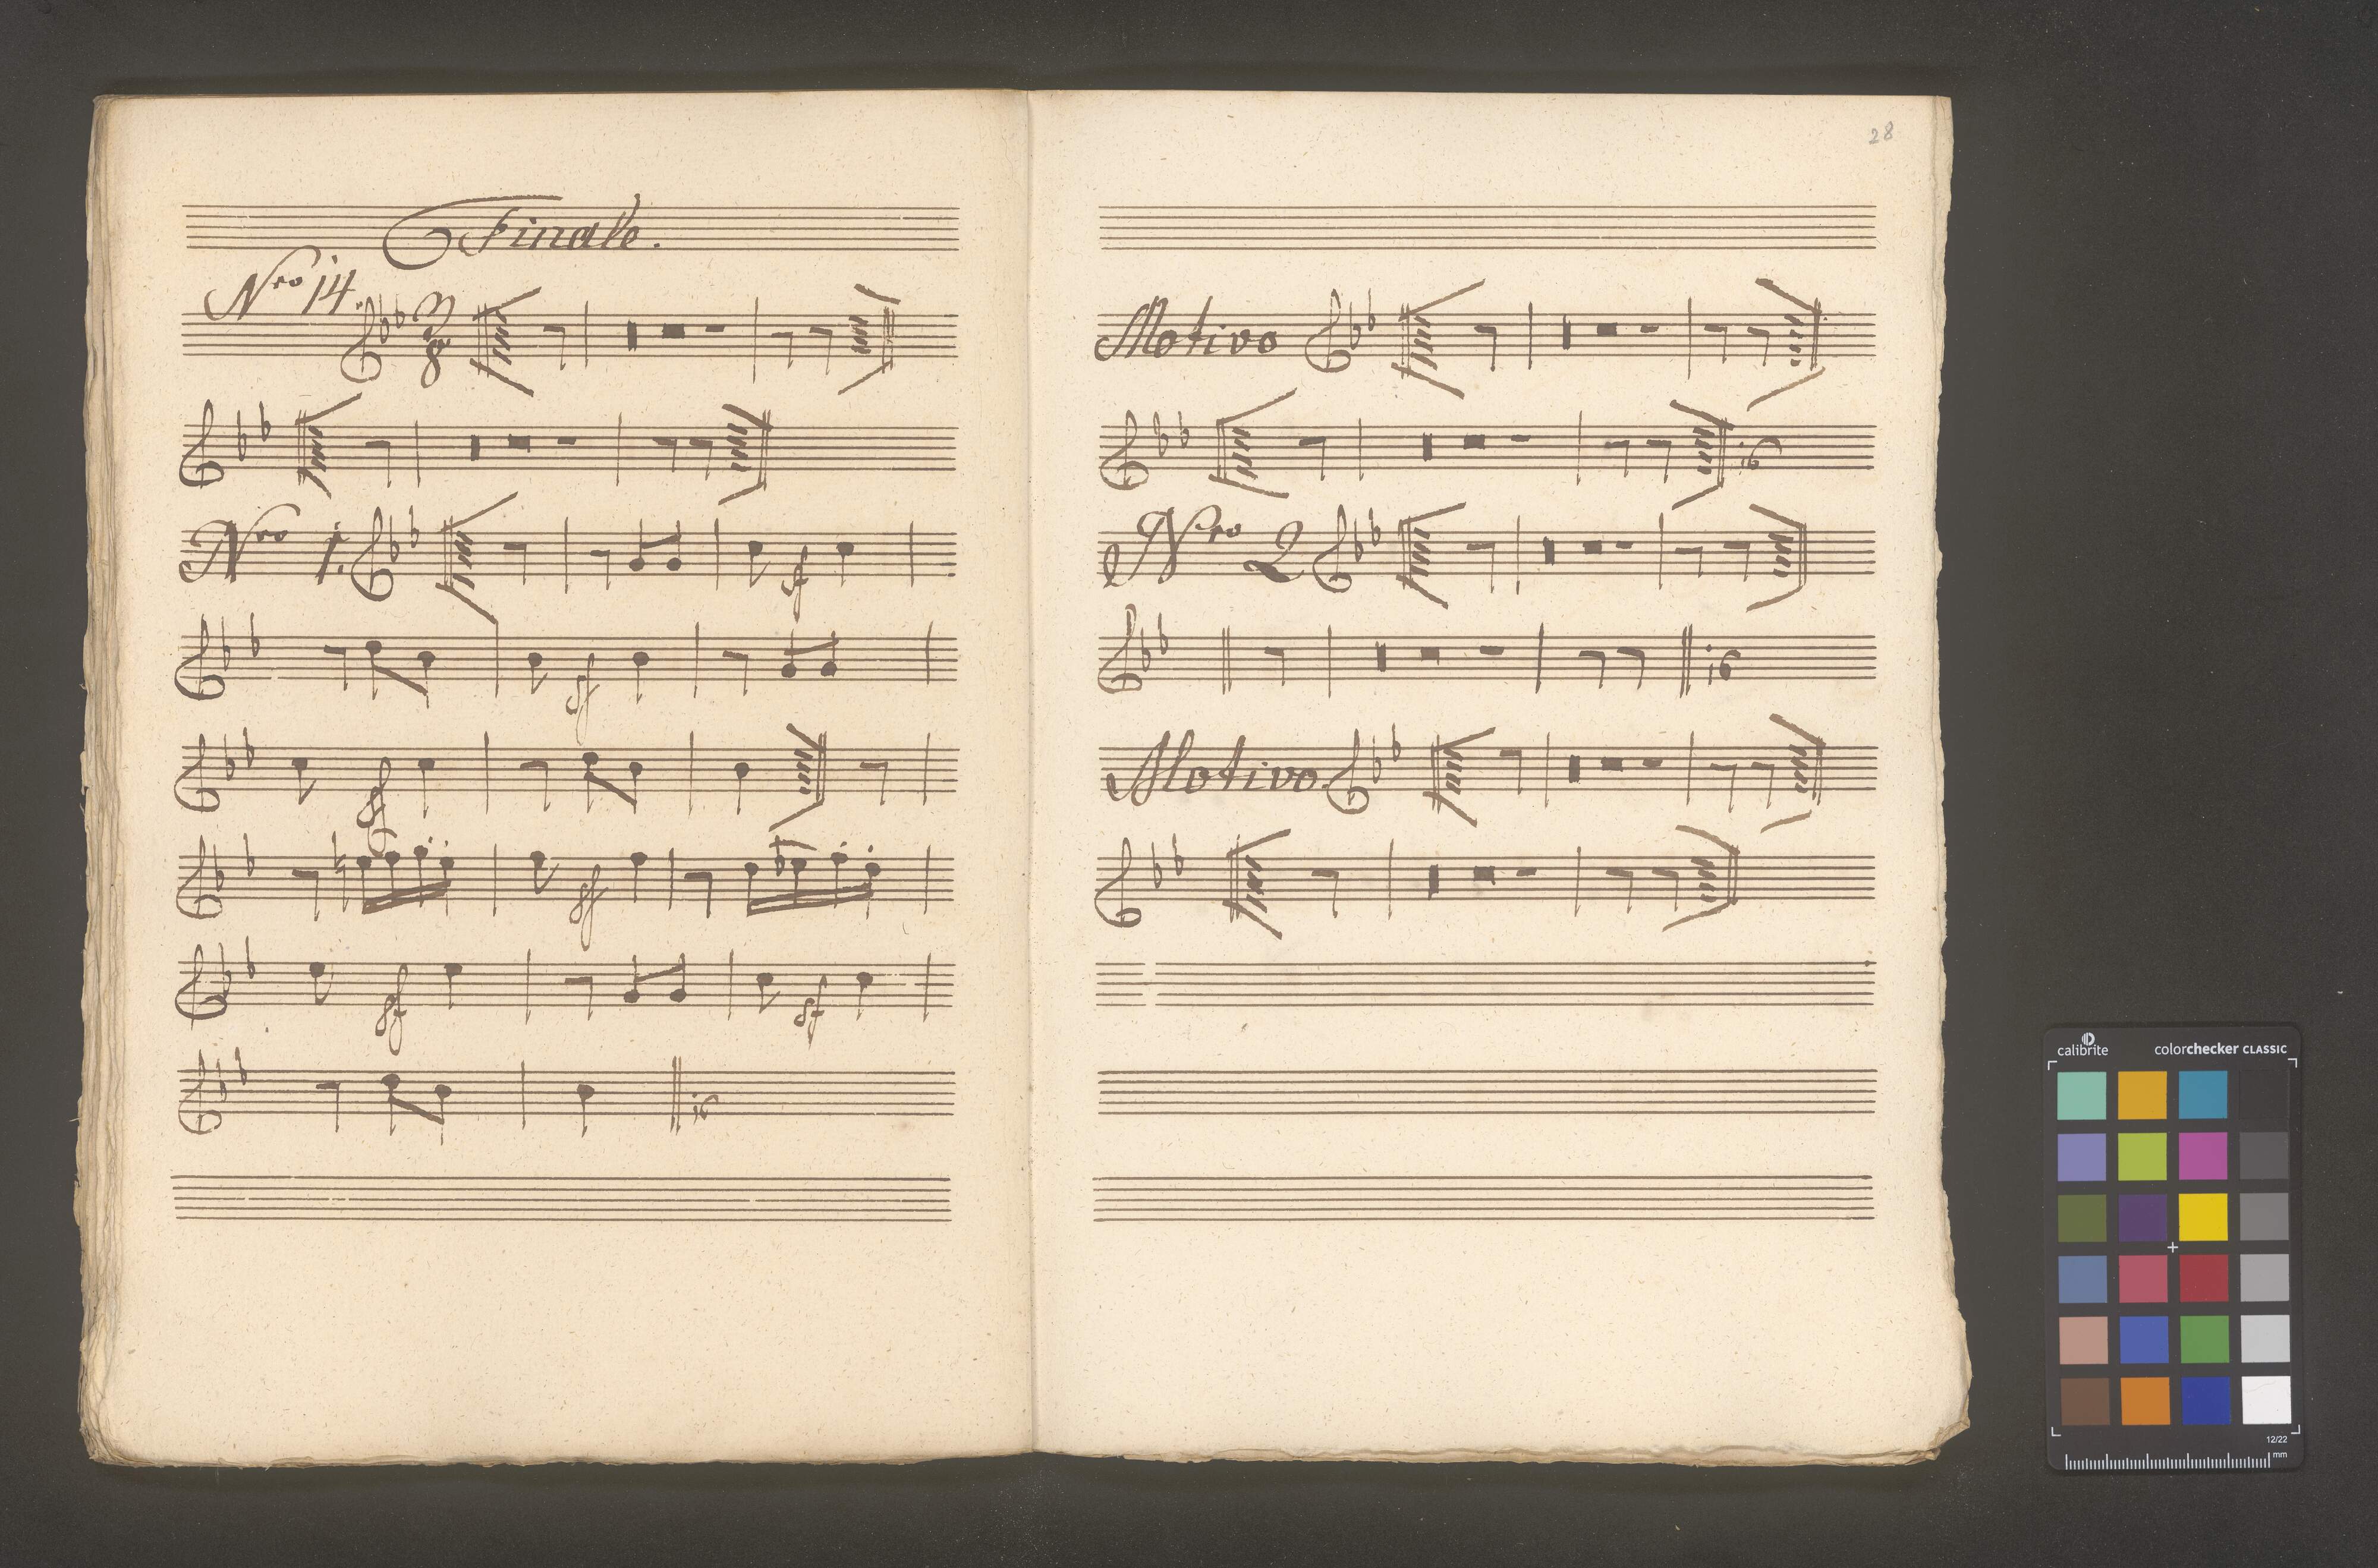 Finale.
Nro 14.
3
8
Nro 1.
sf
sf
sf
sf
sf
sf
28
Motivo
Nro 2
Motivo.
calibrite
colorchecker CLASSIC
12/22
mm